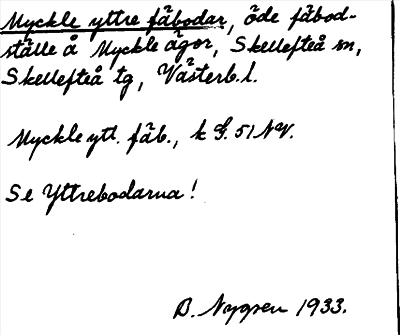 Myckle yttre fäbodar, öde fäbod-
ställe å Myckle ägor, Skellefteå sn,
Skellefteå tg, Västerb. l.
Myckle ytt. fäb., k G. 51 NV.
Se Yttrebodarna!
B. Nygren 1933.